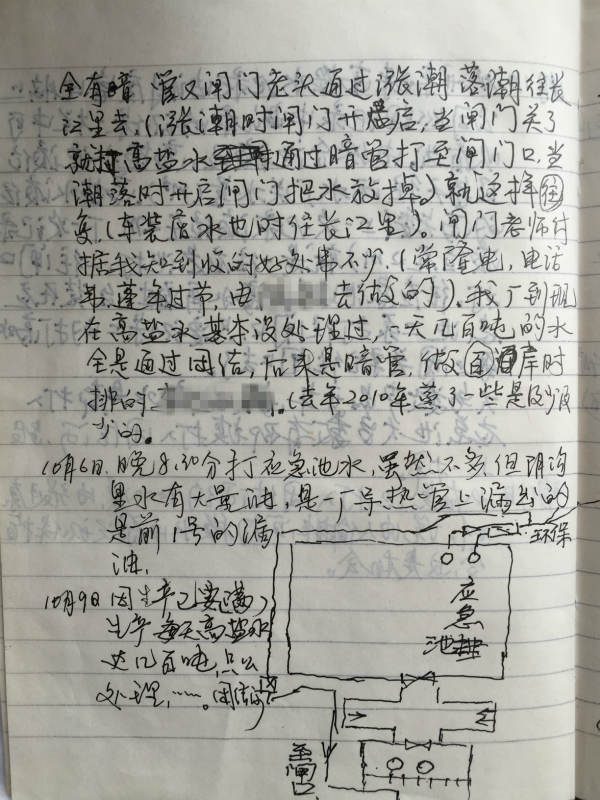 全有暗管又闸门老头通过涨潮落潮往长
江里去,(涨潮时闸门开启,当闸门关了
就打高盐水通过暗管打至闸门口,当
潮落时开启闸门把水放掉。)就这样往
复,(车装废水也时往长江里)。闸门老师付
据我知到收的好处费不少.(常隆电,电话
费,逢年过节,由 去做的),我厂到现
在高盐水基本没处理过,一天几百吨的水
全是通过团结,后来是暗管,做 时
排的 。(去年2010年蒸了一些是
少的。
10月6日.晚8.30分打应急池水,虽然不多但阴沟
里水有大量油,是一厂导热管上漏出的
是前1号的漏
油.
10月9日因生产已
生产每天高盐水
达几百吨,只么
处理,……。
环保
应
急
池
至
闸
口